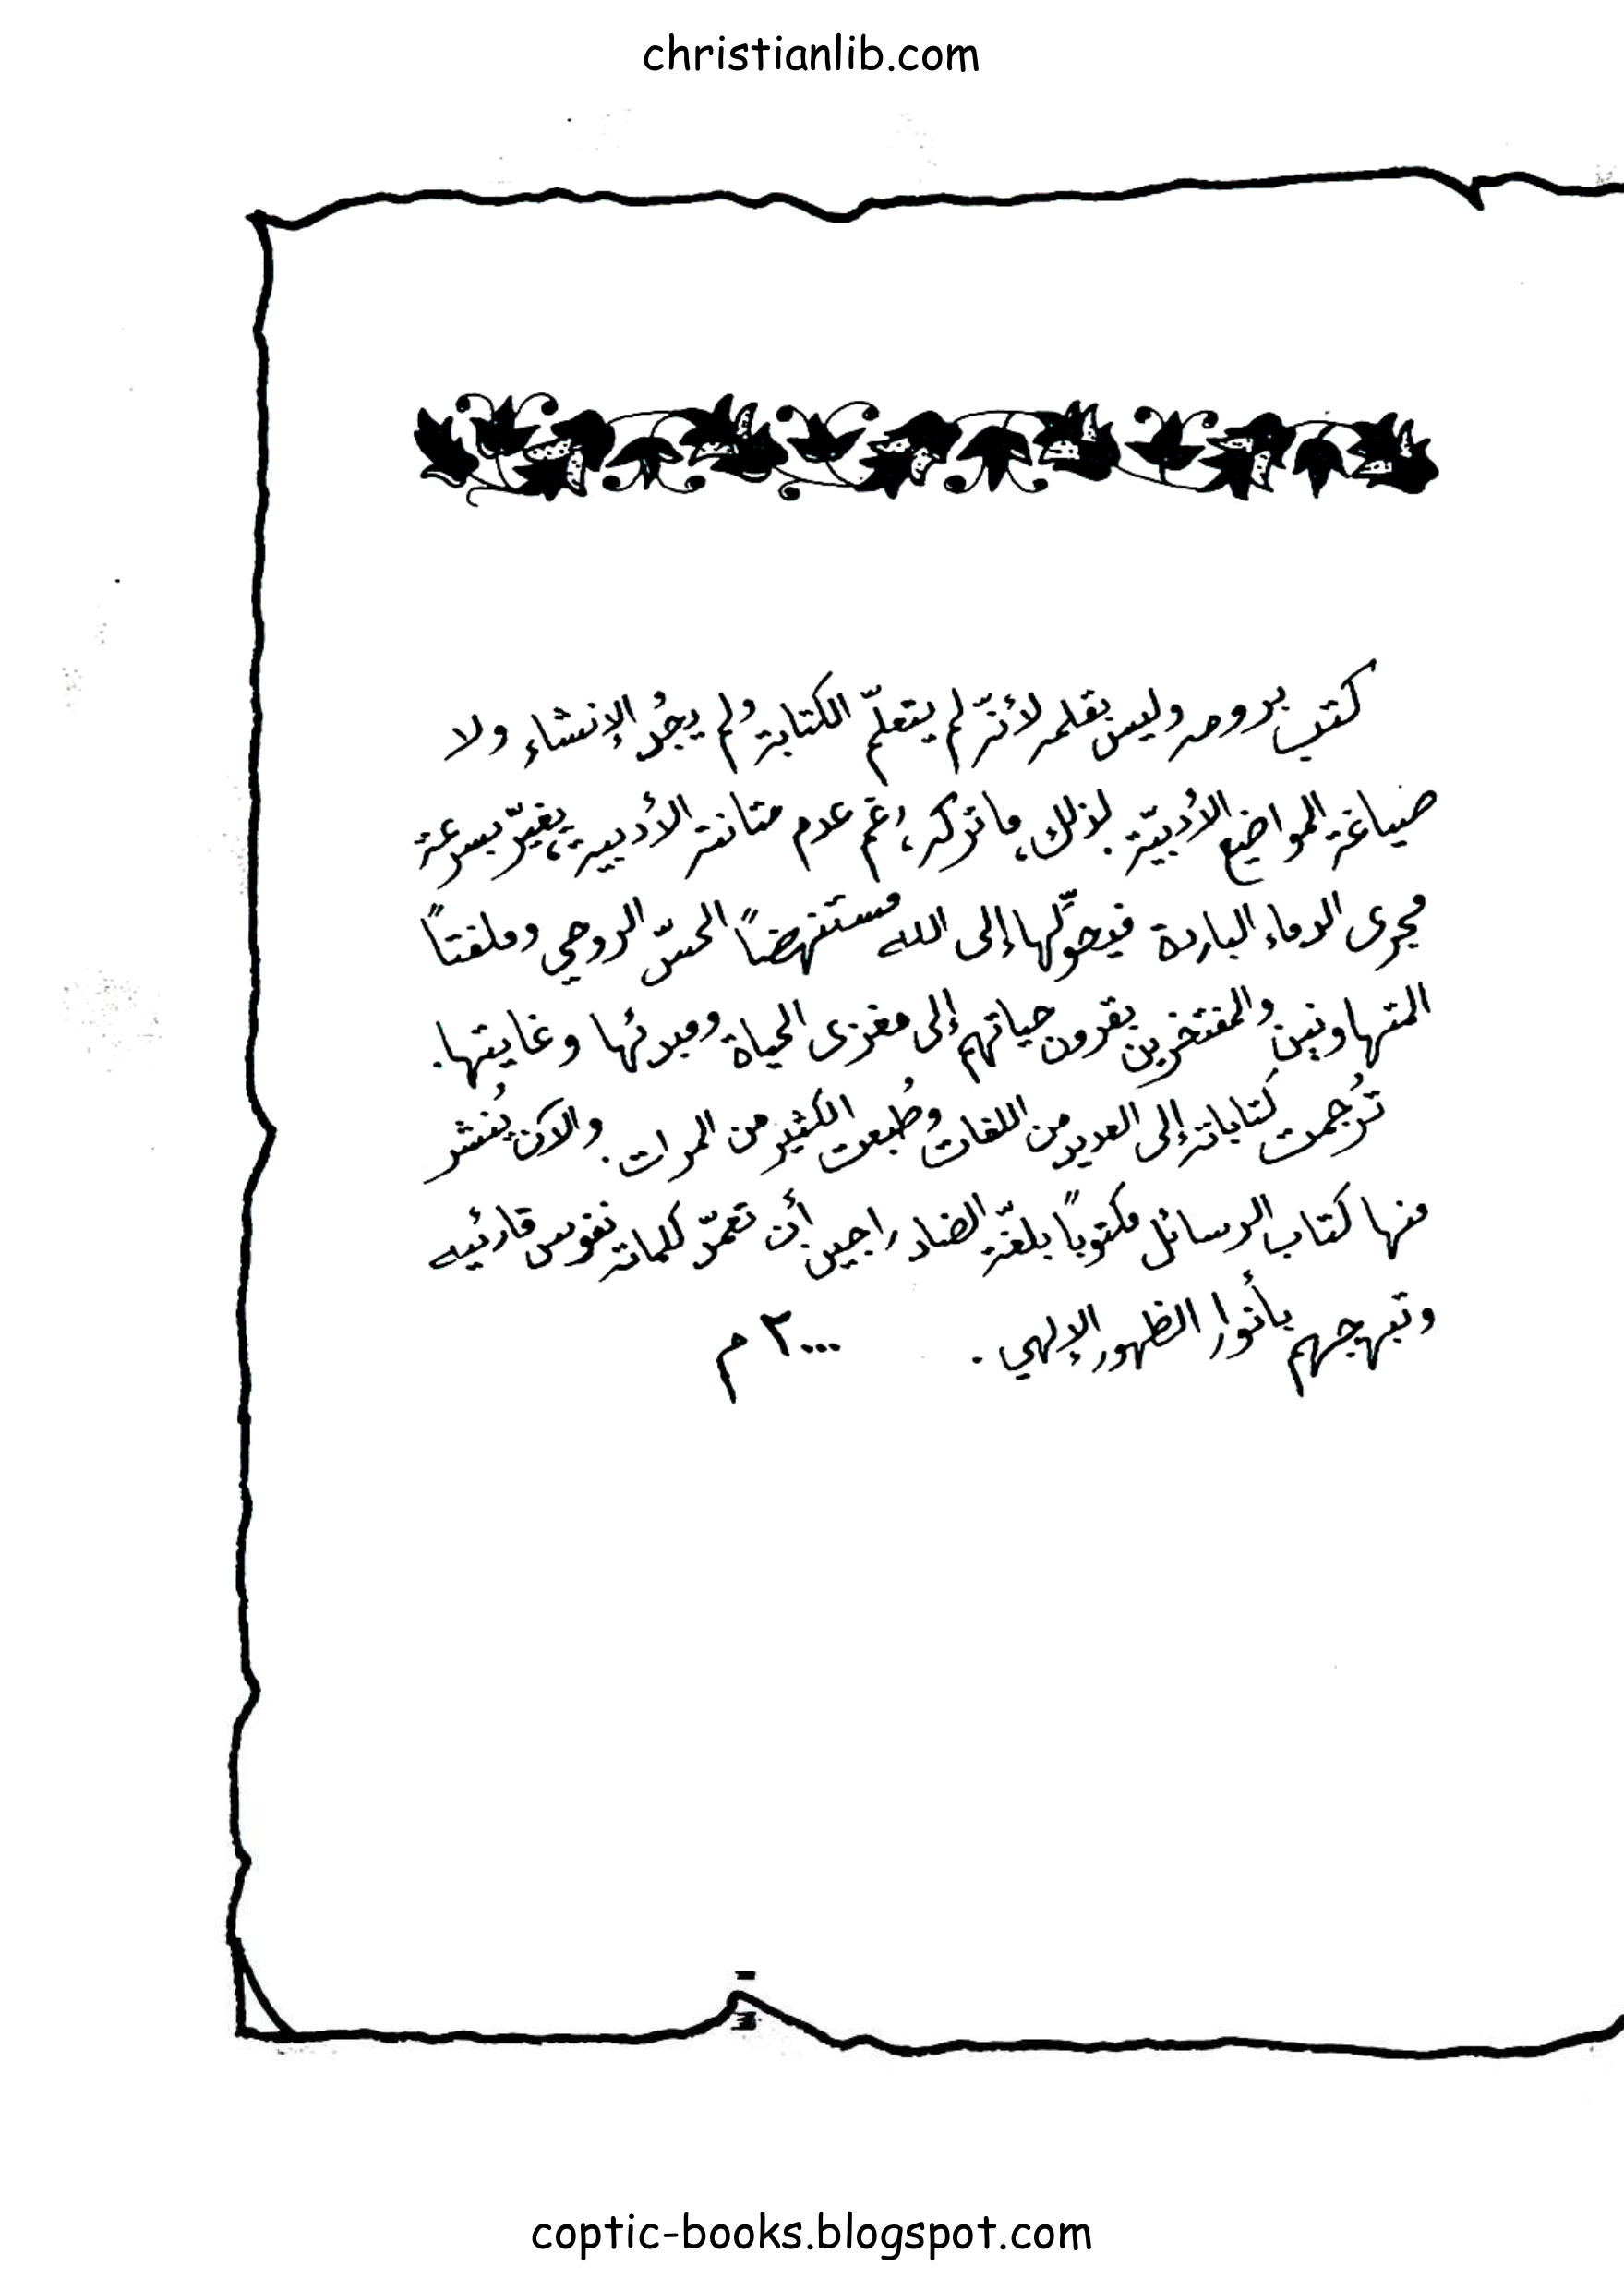 christianlib.com
كتب بروحه وليس بقلمه لأنّه لم يتعلّم الكتابة ولم يجُد الإنشاء ولا
صياغة المواضيع الأدبيّة. لذلك، ما تركه، رغم عدم متانته الأدبية، يغيّر بسرعة
مجرى الدماء الباردة فيحوّلها إلى الله مستنهضاً الحسّ الروحي وملفتاً
المتهاونين والمفتخرين بقرون حياتهم إلى مغزى الحياة ومبدئها وغايتها.
تُرجمت كتاباته إلى العديد من اللغات وطُبعت الكثير من المرات. والآن يُنشر
منها كتاب الرسائل مكتوباً بلغّة الضاد راجين أن تعمّر كلماته نفوس قارئيه
وتبهجهم بأنوار الظهور الإلهي. ٢٠٠٠ م
coptic-books.blogspot.com